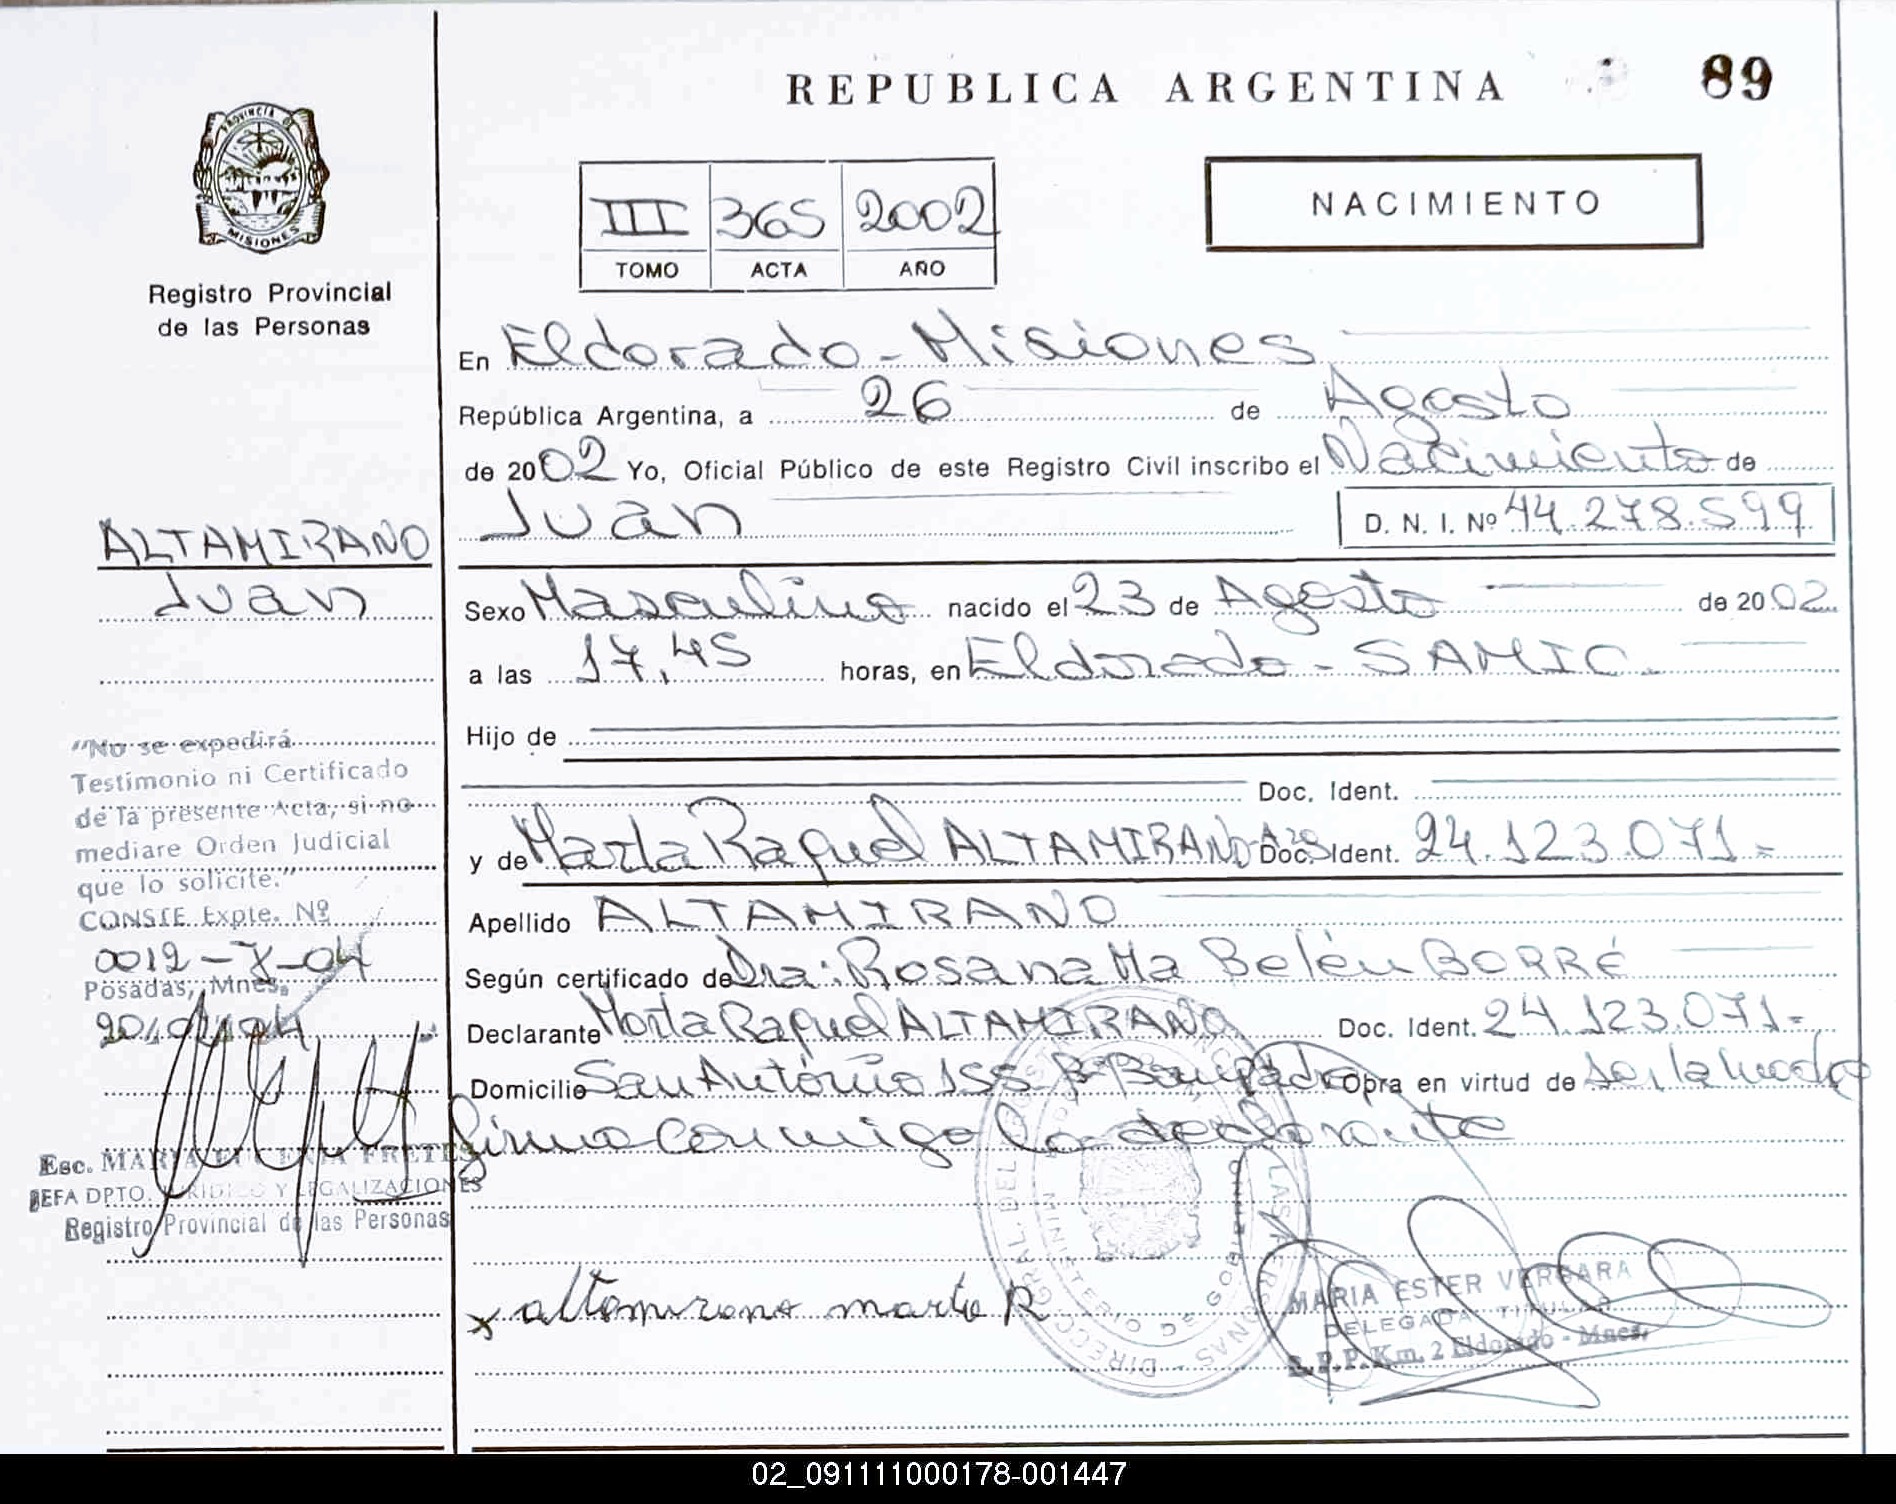 REPUBLICA ARGENTINA
89
PROVINCIA DE
MISIONES
Registro Provincial
de las Personas
III 365 2002
TOMO ACTA AÑO
NACIMIENTO
En Eldorado - Misiones
República Argentina, a 26 de Agosto
de 2002 Yo, Oficial Público de este Registro Civil inscribo el Nacimiento de
Juan
D. N. I. Nº 44.278.599
ALTAMIRANO
Juan
Sexo Masculino nacido el 23 de Agosto de 2002
a las 17,45 horas, en Eldorado - SAMIC.
Hijo de
Doc. Ident.
y de Marta Raquel ALTAMIRANO Doc. Ident. 24.123.071.-
Apellido ALTAMIRANO
Según certificado de Dra: Rosana Ma Belén BORRÉ
Declarante Marta Raquel ALTAMIRANO Doc. Ident. 24.123.071.-
Domicilio San Antonio 155 Bº Obra en virtud de ser la madre
firma conmigo la declarante
"No se expedirá
Testimonio ni Certificado
de la presente Acta, si no
mediare Orden Judicial
que lo solicite."
CONSTE Expte. Nº
0012-7-04
Posadas, Mnes.
Esc. MARIA EUGENIA FRETES
JEFA DPTO. JURIDICO Y LEGALIZACIONES
Registro Provincial de las Personas
x altamirano marta R
MARIA ESTER VERGARA
DELEGADA TITULAR
R.P.P. Km. 2 Eldorado - Mnes.
02_091111000178-001447